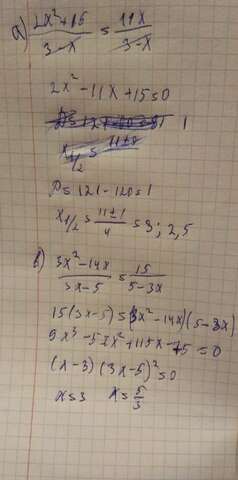 а) (2x²+15)/(3-x) = 11x/(3-x)
2x² - 11x + 15 = 0
D = 121 - 120 = 1
x1/2 = (11±1)/4 = 3; 2,5
в) (3x²-14x)/(3x-5) = 15/(5-3x)
15(3x-5) = (3x²-14x)(5-3x)
9x³-57x²+115x-75 = 0
(x-3)(3x-5)² = 0
x = 3 x = 5/3